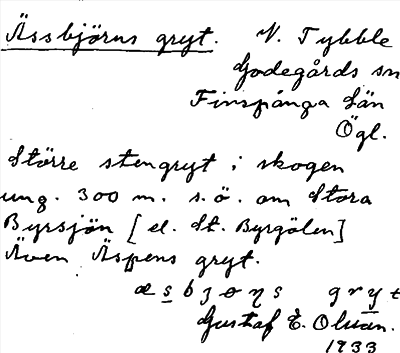 Ässbjörns gryt. V. Tybble
Godegårds sn
Finspånga län
Ögl.
Större stengryt i skogen
ung. 300 m. s.ö. om Stora
Byrsjön [el. St. Byrgölen]
Även Äspens gryt.
æsbʒɵŋs gryt
Gustaf E. Olsson.
1933